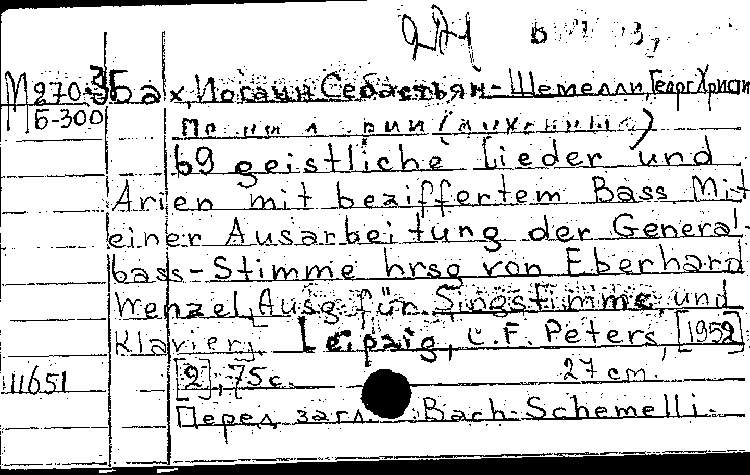 М270-3 Бах, Иоганн Себастьян - Шемелли, Георг Христи
Б-300
69 geistliche Lieder und
Arien mit beziffertem Bass Mit
einer Ausarbeitung der General-
bass-Stimme hrsg von Eberhard
Wenzel, Ausg für Singstimme und
Klavier. Leipzig, C.F. Peters, [1952]
11651 [2], 75 c. 27 cm.
Перед загл. Bach-Schemelli.